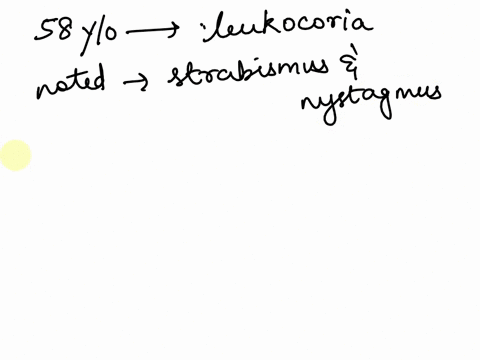 58 y/o → leukocoria
noted → strabismus &
nystagmus